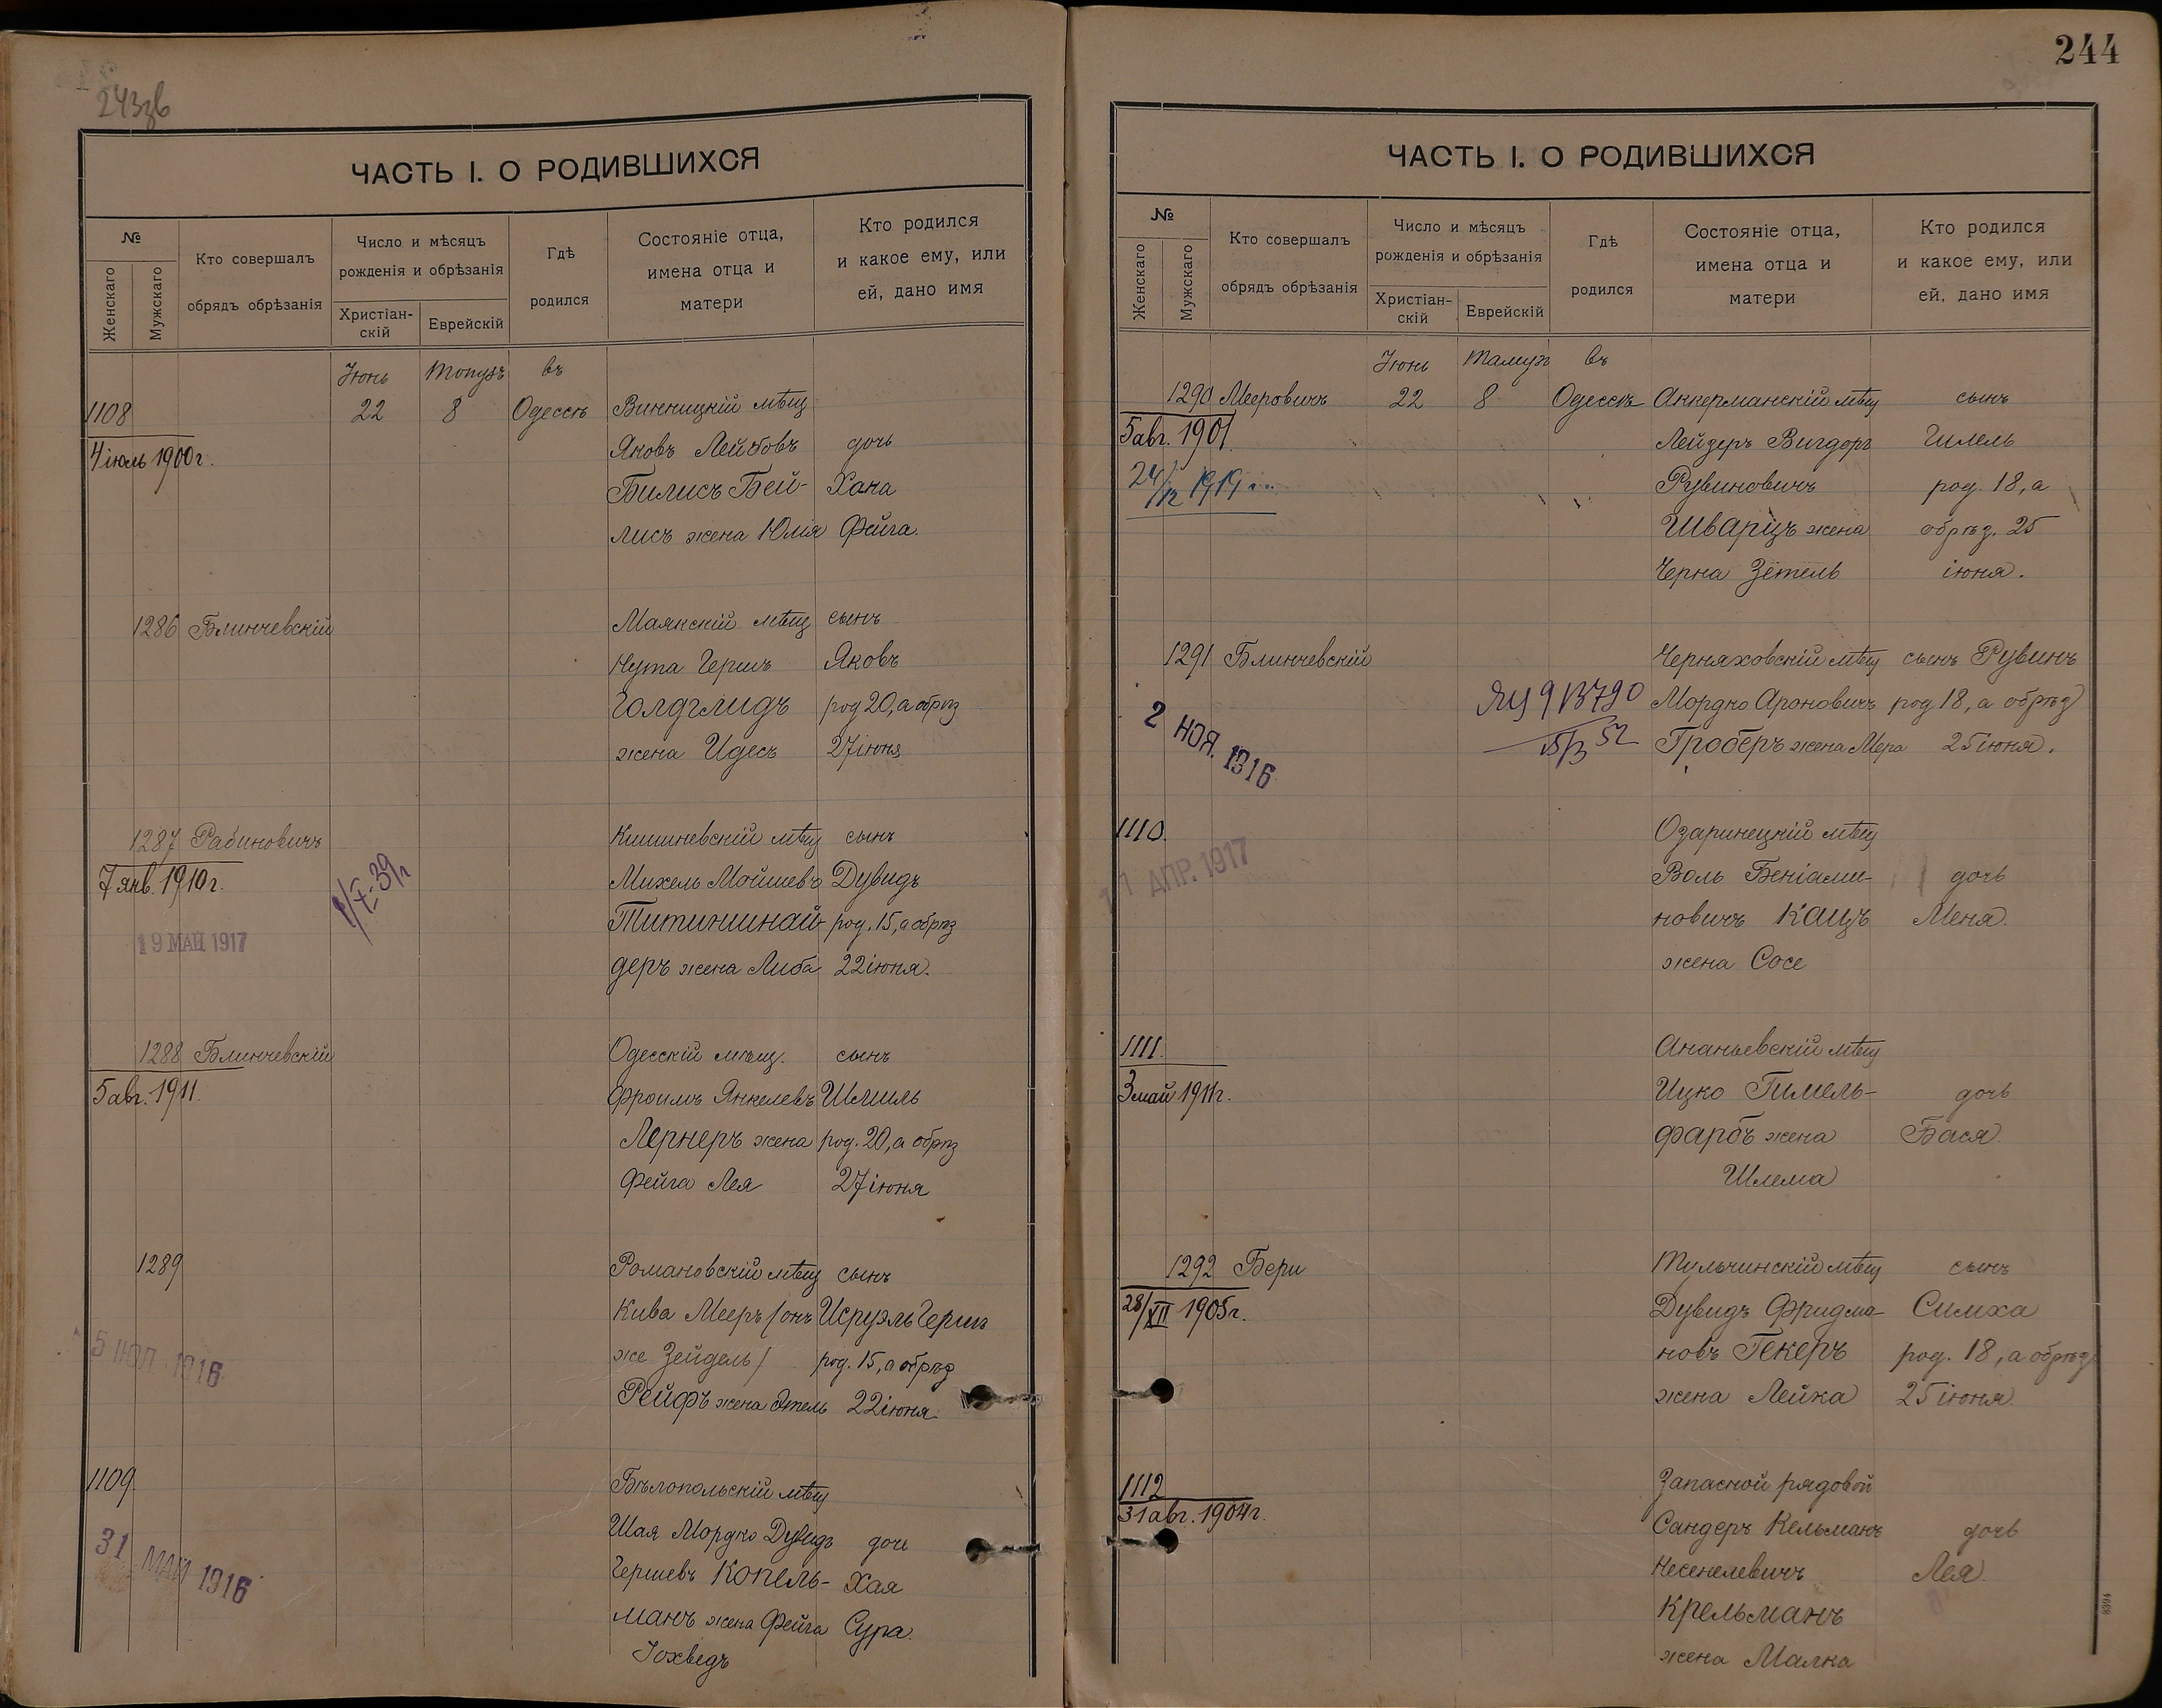 243зв
ЧАСТЬ I. О РОДИВШИХСЯ
№
Женскаго
Мужскаго
Кто совершалъ
обрядъ обрѣзанія
Число и мѣсяцъ
рожденія и обрѣзанія
Христіан-
скій
Еврейскій
Гдѣ
родился
Состояніе отца,
имена отца и
матери
Кто родился
и какое ему, или
ей, дано имя
Іюнь Топузъ въ
1108 22 8 Одессѣ Винницкій мѣщ
4 іюль 1900 г. Яковъ Лейбовъ дочь
Билисъ Бей- Хана
лисъ жена Юлія Фейга.
1286 Блинчевскій Маякскій мѣщ сынъ
Нута Гершъ Яковъ
Голдглидъ род 20, а обрѣз
жена Идесъ 27 іюня
1287 Рабиновичъ Кишиневскій мѣщ сынъ
7 янв. 1910 г. Михель Мойшевъ Дувидъ
Титиншнай- род. 15, а обрѣз
19 МАЙ 1917 деръ жена Либа 22 іюня.
1288 Блинчевскій Одесскій мѣщ. сынъ
5 авг. 1911. Фроимъ Янкелевъ Шмиль
Лернеръ жена род. 20, а обрѣз
Фейга Лея 27 іюня
1289 Романовскій мѣщ сынъ
Кива Мееръ /онъ Исруэль Герш
же Зейдель/ род. 15, а обрѣз
1916 Рейфъ жена Этель 22 іюня.
1109 Бѣлопольскій мѣщ
Шая Мордко Дувидъ дочь
31 МАЙ 1916 Гершевъ Копель- Хая
манъ жена Фейга Сура.
Іохведъ
244
ЧАСТЬ I. О РОДИВШИХСЯ
№
Женскаго
Мужскаго
Кто совершалъ
обрядъ обрѣзанія
Число и мѣсяцъ
рожденія и обрѣзанія
Христіан-
скій
Еврейскій
Гдѣ
родился
Состояніе отца,
имена отца и
матери
Кто родился
и какое ему, или
ей, дано имя
Іюнь Тамузъ въ
1290 Мееровичъ 22 8 Одессѣ Аккерманскій мѣщ сынъ
5 авг. 1901. Лейзеръ Вигдоръ Гилель
24/12 1919 Рувиновичъ род. 18, а
Шварцъ жена обрѣз. 25
Черна Зётель іюня.
1291 Блинчевскій Черняховскій мѣщ сынъ Рувинъ
Мордко Ароновичъ род 18, а обрѣз
2 НОЯ. 1916 Гроберъ жена Мера 25 іюня.
1110. Озаринецкій мѣщ
АПР. 1917 Воль Беніами- дочь
новичъ Кацъ Меня.
жена Сосе
1111. Ананьевскій мѣщ
3 май 1911 г. Ицко Гимель- дочь
фарбъ жена Бася.
Шлема
1292 Бери Тульчинскій мѣщ сынъ
28/XII 1905 г. Дувидъ Фридма- Симха
новъ Гекеръ род. 18, а обрѣз
жена Лейка 25 іюня.
1112 Запасной рядовой
31 авг. 1904 г. Сандеръ Кельманъ дочь
Несенелевичъ Лея.
Крельманъ
жена Малка